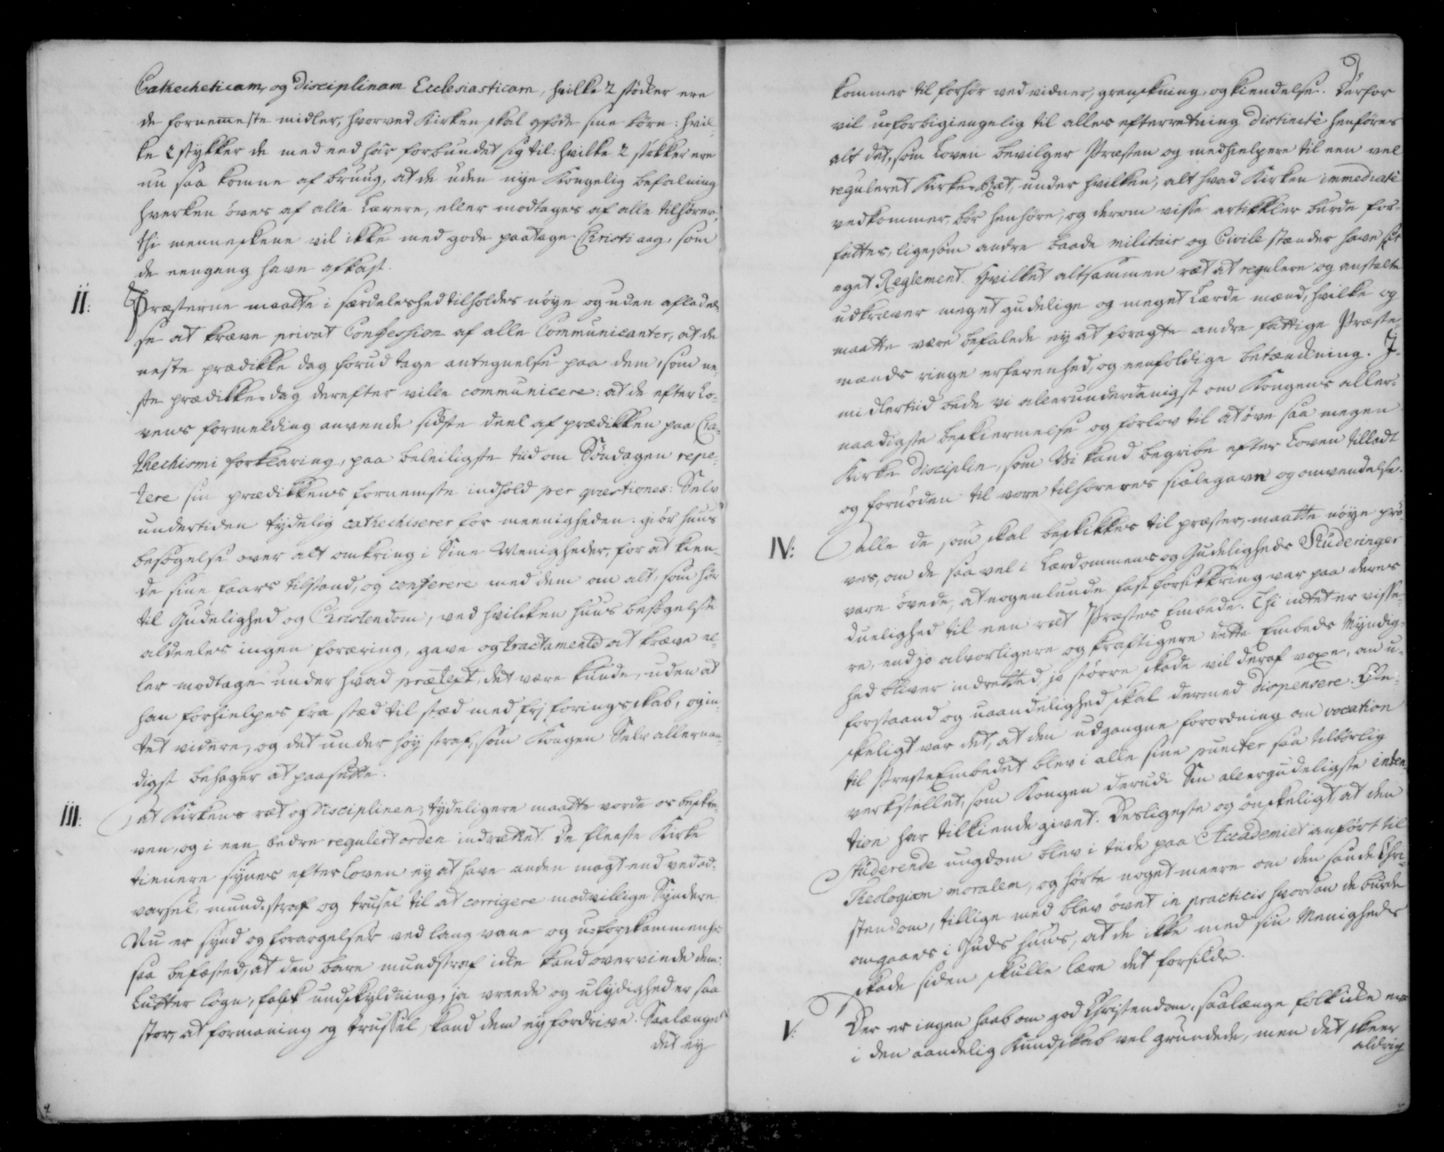 Catecheticam, og Disciplinam Ecclesiasticam, hvilke 2 stöcker ere
de fornemmeste midler, hvorved Kirken skal opföde sine börn: hvil-
ke 2 stykker de med eed har forbundet sig til: hvilke 2 stökker ere
nu saa komne af brug, at de uden nye Kongelig befalning
hverken öves af alle Lærere, eller modtages af alle tilhörer,
thi menneskene vil ikke med gode paatage Christi aag, som
de eengang have afkast.
II: Præsterne maatte i særdeleshed tilholdes nöye og uden afladel-
se at kræve privat Confession af alle Communicanter, at de
neste prædikke dag forud tage antegnelse paa dem, som ne-
ste prædikke-dag derefter ville communicere: at de efter Lo-
vens formelding anvende sidste deel af prædikken paa Ca-
thechismi forklaring, paa beleiligste tiid om Söndagen repe-
tere sin prædikkens fornemste indhold per qvæstiones: Selv
undertiden tydelig cathechiserer for meenigheden: giör huus
besögelse over alt omkring i Sine Menigheder, for at kien-
de sine faars tilstand, og conferere med dem om alt, som hör
til Gudelighed og Christendom, ved hvilcken huus besögelse
aldeeles ingen foræring, gave og tractamente at kræve el-
ler modtage under hvad prætext, det være kunde, uden at
han forhielpes fra stæd til stæd med fri föringsskab, og in-
tet videre, og det under höy straf, som Kongen Selv allernaa-
digst behager at paasætte.
III: At Kirkens ræt og Disciplinen, tydeligere maatte vorde os beskre-
ven, og i een bedre regulert orden indrættet. De fleeste Kirke
tienere synes efter loven ey at have anden magt end ved ad-
varsel, mund-straf og trusel til at corrigere modvillige Syndere.
Nu er synd og forargelser ved lang vane og uforskammenhed
saa befæsted, at den bare mundstraf icke kand overvinde dem:
Lutter lögn, falsk undskyldning, ja vreede og ulydighed er saa
stor, at formaning og trussel kand dem ey fordrive. Saalænge
det ey
9
kommer til forhör ved vidner, granskning, og kiendelse. Derfor
vil uforbigiengelig til alles efterretning distincte henföres
alt det, som Loven bevilger Præsten og medhielpere til een vel
reguleret Kirke-Ræt, under hvilken, alt hvad Kirken immediate
vedkommer, bör henhöre, og derom visse artikkler burde for-
fattes, ligesom andre baade militair og Civile stænder have sit
eget Reglement. Hvilket altsammen ræt at regulere og anstalte
udkræver meget gudelige og meget Lærde mænd, hvilke og
maatte være befalede ey at foragte andre fattige Præste-
mænds ringe erfarenhed, og eenfoldige betænckning. I-
midlertiid bede vi allerunderdanigst om Kongens aller-
naadigste beskiermelse og forlov til at öve saa megen
Kirke Disciplin, som Vi kand begribe efter Loven tilladt
og fornöden til vore tilhöreres siælegavn og omvendelse.
IV: Alle de som skal beskikkes til præster, maatte nöye prö-
ves, om de saa vel i Lærdommens og Gudeligheds Studeringer
vare övede, at nogenlunde fast forsikkring var paa deres
duelighed til een ret Præstes Embede. Thi intet er visse-
re, end jo alvorligere og kraftigere dette Embeds Myndig-
hed bliver indrettet, jo större skade vil deraf voxe, om u-
forstaand og uaandelighed skal dermed dispensere. Ön-
skeligt var det, at den udgangne forordning om vocation
til PræsteEmbedet blev i alle sine puncter saa tilbörlig
verkstellet, som Kongen derudi Sin allergudeligste inten-
tion har tilkiende givet. Desligeste og önskeligt, at den
studerende ungdom blev i tide paa Academiet anfört til
Theologiam moralem, og hörte noget meere om den sande Chri-
stendom, tillige med blev övet in practicis hvordan de burde
omgaaes i Guds huus, at de ikke med sin Menigheds
skade siden skulle lære det forsilde.
V: Der er ingen haab om god Christendom, saalænge folk icke ere
i den aandelig Kundskab vel grundede, men det skeer
aldrig